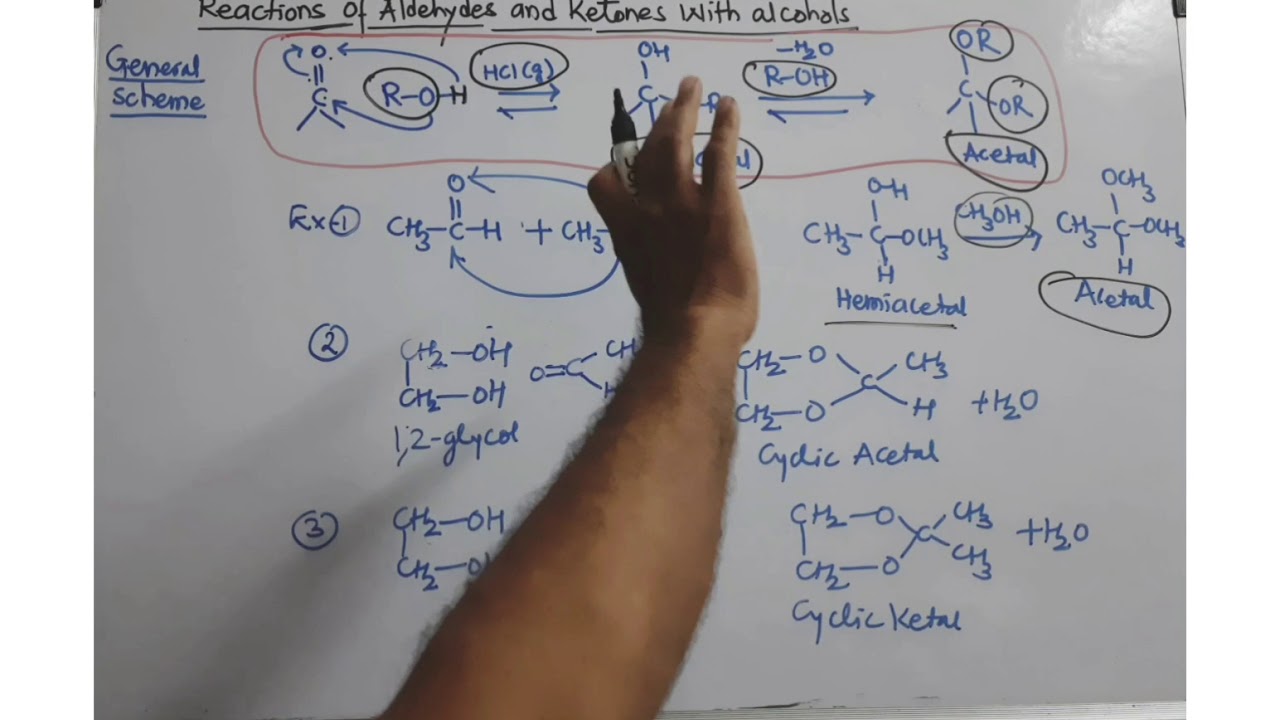 Reactions of Aldehydes and Ketones with alcohols
General
Scheme
O
C
R-O-H
HCl(g)
OH
C
R
-H2O
R-OH
OR
C
OR
Acetal
Ex-1
O
CH3-C-H + CH3
OH
CH3-C-OCH3
H
Hemiacetal
CH3OH
OCH3
CH3-C-OCH3
H
Acetal
2
CH2-OH
CH2-OH
1,2-glycol
O=C
CH2-O
CH2-O
C
CH3
H
+H2O
Cyclic Acetal
3
CH2-OH
CH2-O
CH2-O
CH2-O
C
CH3
CH3
+H2O
Cyclic Ketal